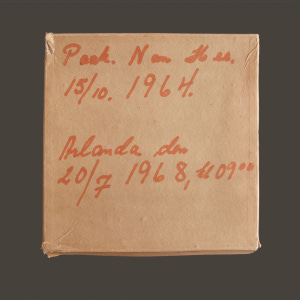 Pack. Nam Hee.
15/10. 1964.
Arlanda den
20/7 1968, kl 09⁰⁰